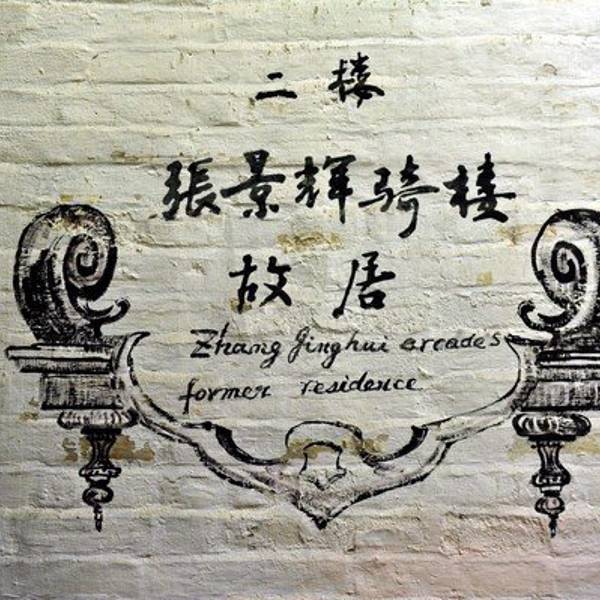 二楼
張景辉骑楼
故居
Zhang Jinghui arcades
former residence